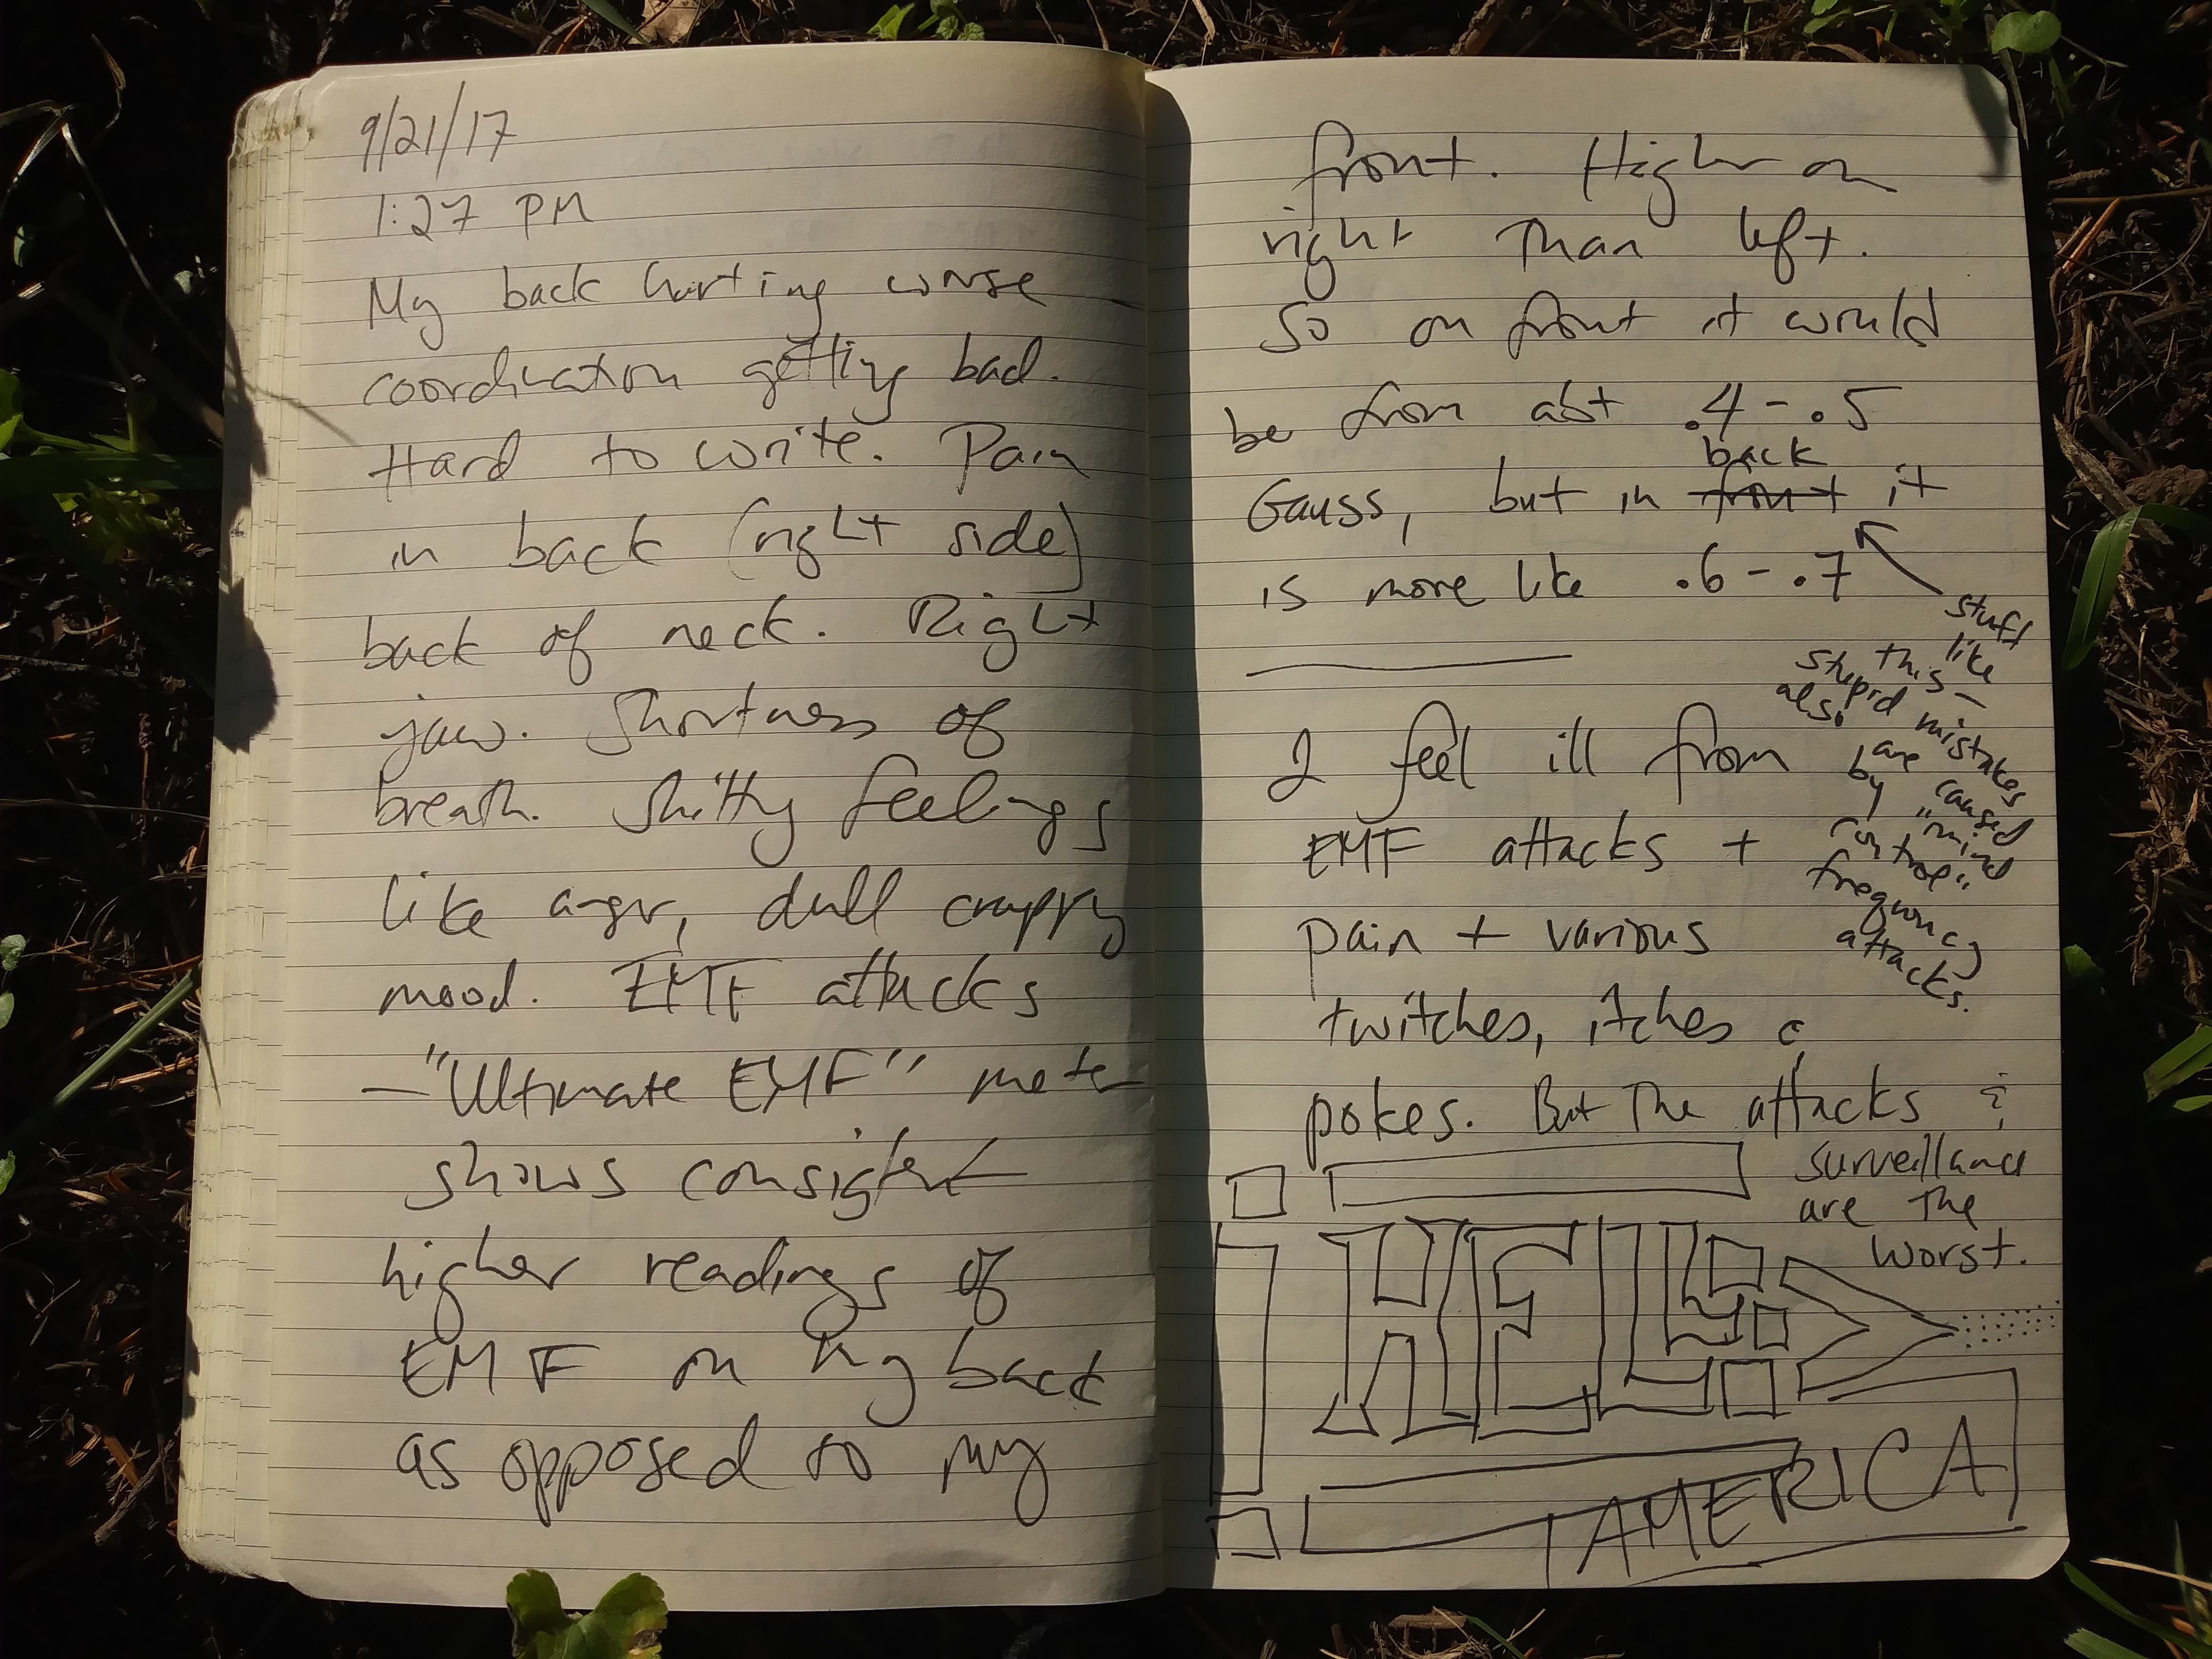 9/21/17
1:27 PM
My back hurting worse
coordination getting bad.
Hard to write. Pain
in back (right side)
back of neck. Right
jaw. Shortness of
breath. Shitty feelings
like anger, dull crappy
mood. EMF attacks
—"Ultimate EMF" meter
shows consistent
higher readings of
EMF on my back
as opposed to my
front. Higher on
right than left.
So on front it would
be from abt .4-.5
back
Gauss, but in front it
is more like .6-.7
stuff
like
this—
stupid mistakes
also are caused
by "mind
control"
frequency
attacks.
I feel ill from
EMF attacks +
pain + various
twitches, itches &
pokes. But the attacks &
surveillance
are the
worst.
HELL
AMERICA